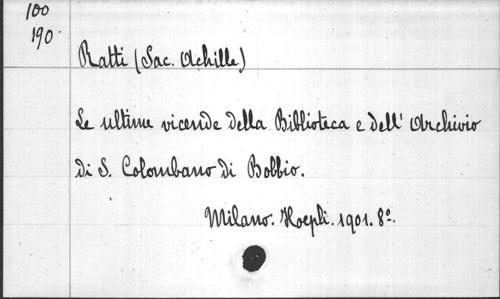 100
190.
Ratti (Sac. Achille)
Le ultime vicende della Biblioteca e dell' Archivio
di S. Colombano di Bobbio.
Milano. Hoepli. 1901. 8º.